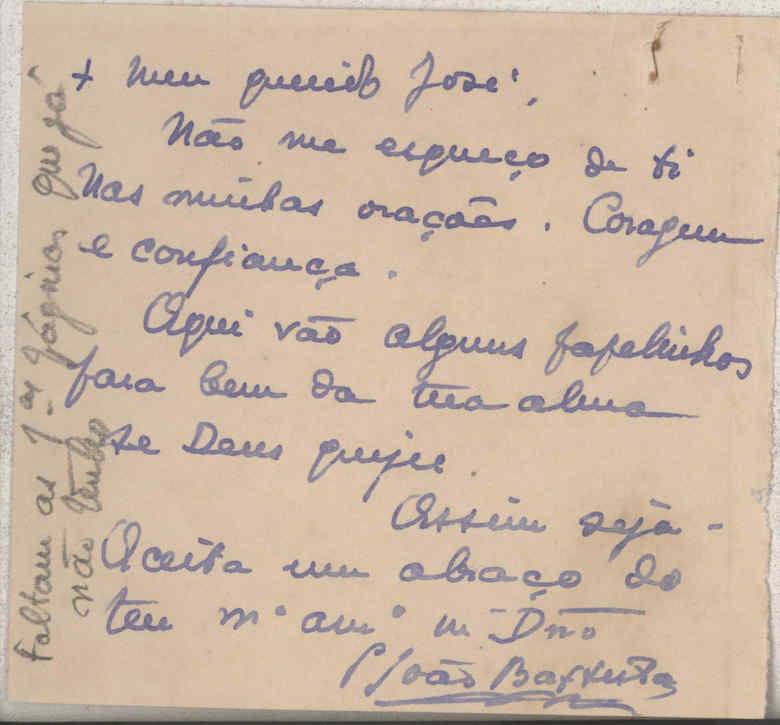 + Meu querido José,
Não me esqueço de ti
Nas minhas orações. Coragem
e confiança.
Aqui vão alguns papelinhos
para bem da tua alma
se Deus quiser.
Assim seja -
Aceita um abraço do
teu mº amº in Dno
P. João Baptista
Faltam as 1as páginas que já
não tenho